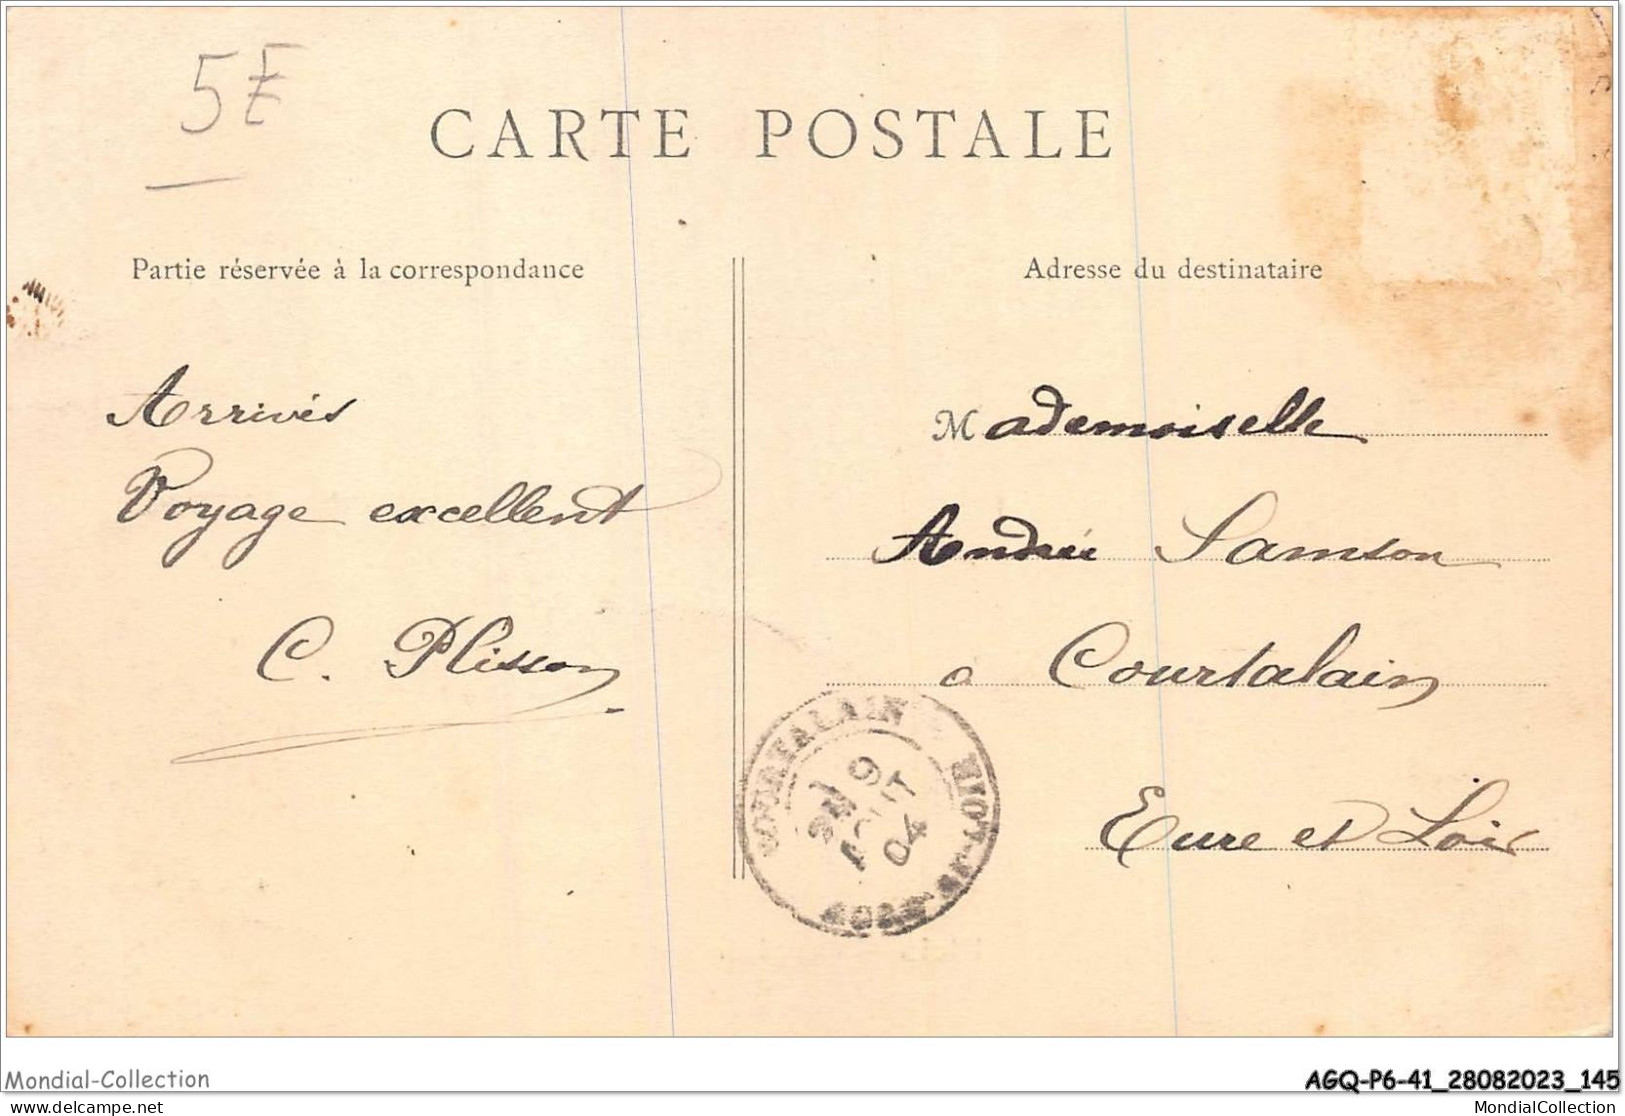 5€
CARTE POSTALE
Partie réservée à la correspondance
Adresse du destinataire
Arrivés
Voyage excellent
C. Plisson
Mademoiselle
Andrée Samson
à Courtalain
Eure et Loir
COURTALAIN
EURE-ET-LOIR
9
AOUT
04
Mondial-Collection
AGQ-P6-41_28082023_145
delcampe.net
MondialCollection